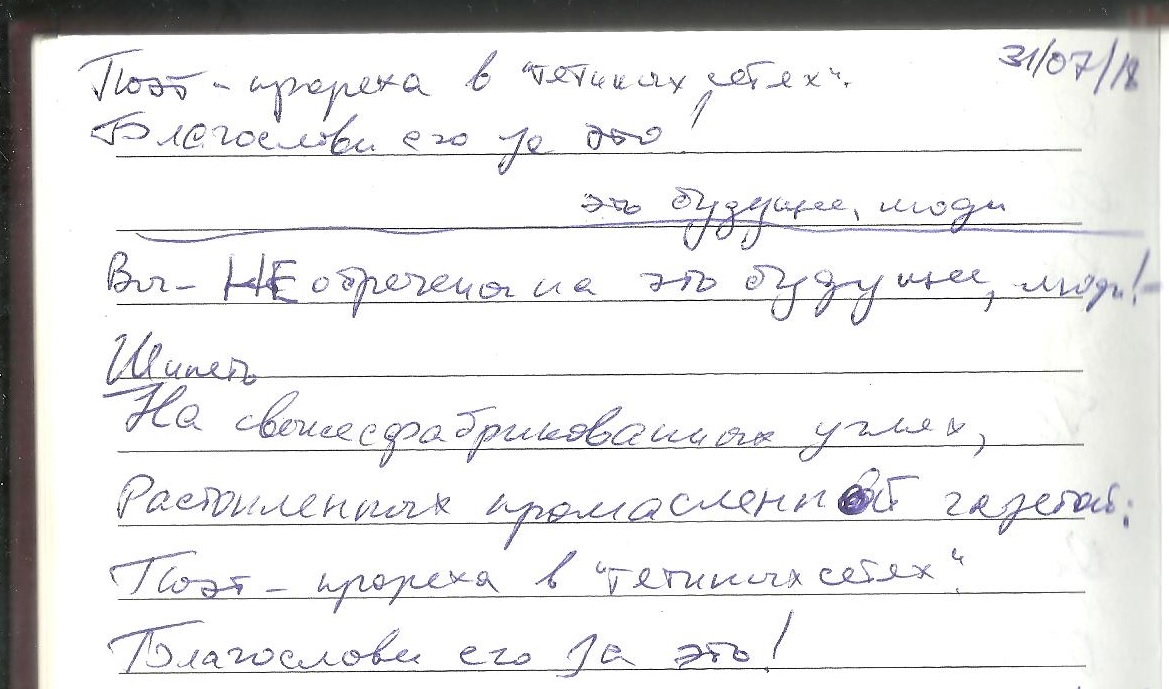 31/07/18
Поэт - прореха в "тетиных сетях".
Благослови его за это!
это будущее, люди
Вы - НЕ обречены на это будущее, люди! -
Шипеть
На свежесфабрикованных углях,
Растопленных промасленной газетой:
Поэт - прореха в "тетиных сетях".
Благослови его за это!